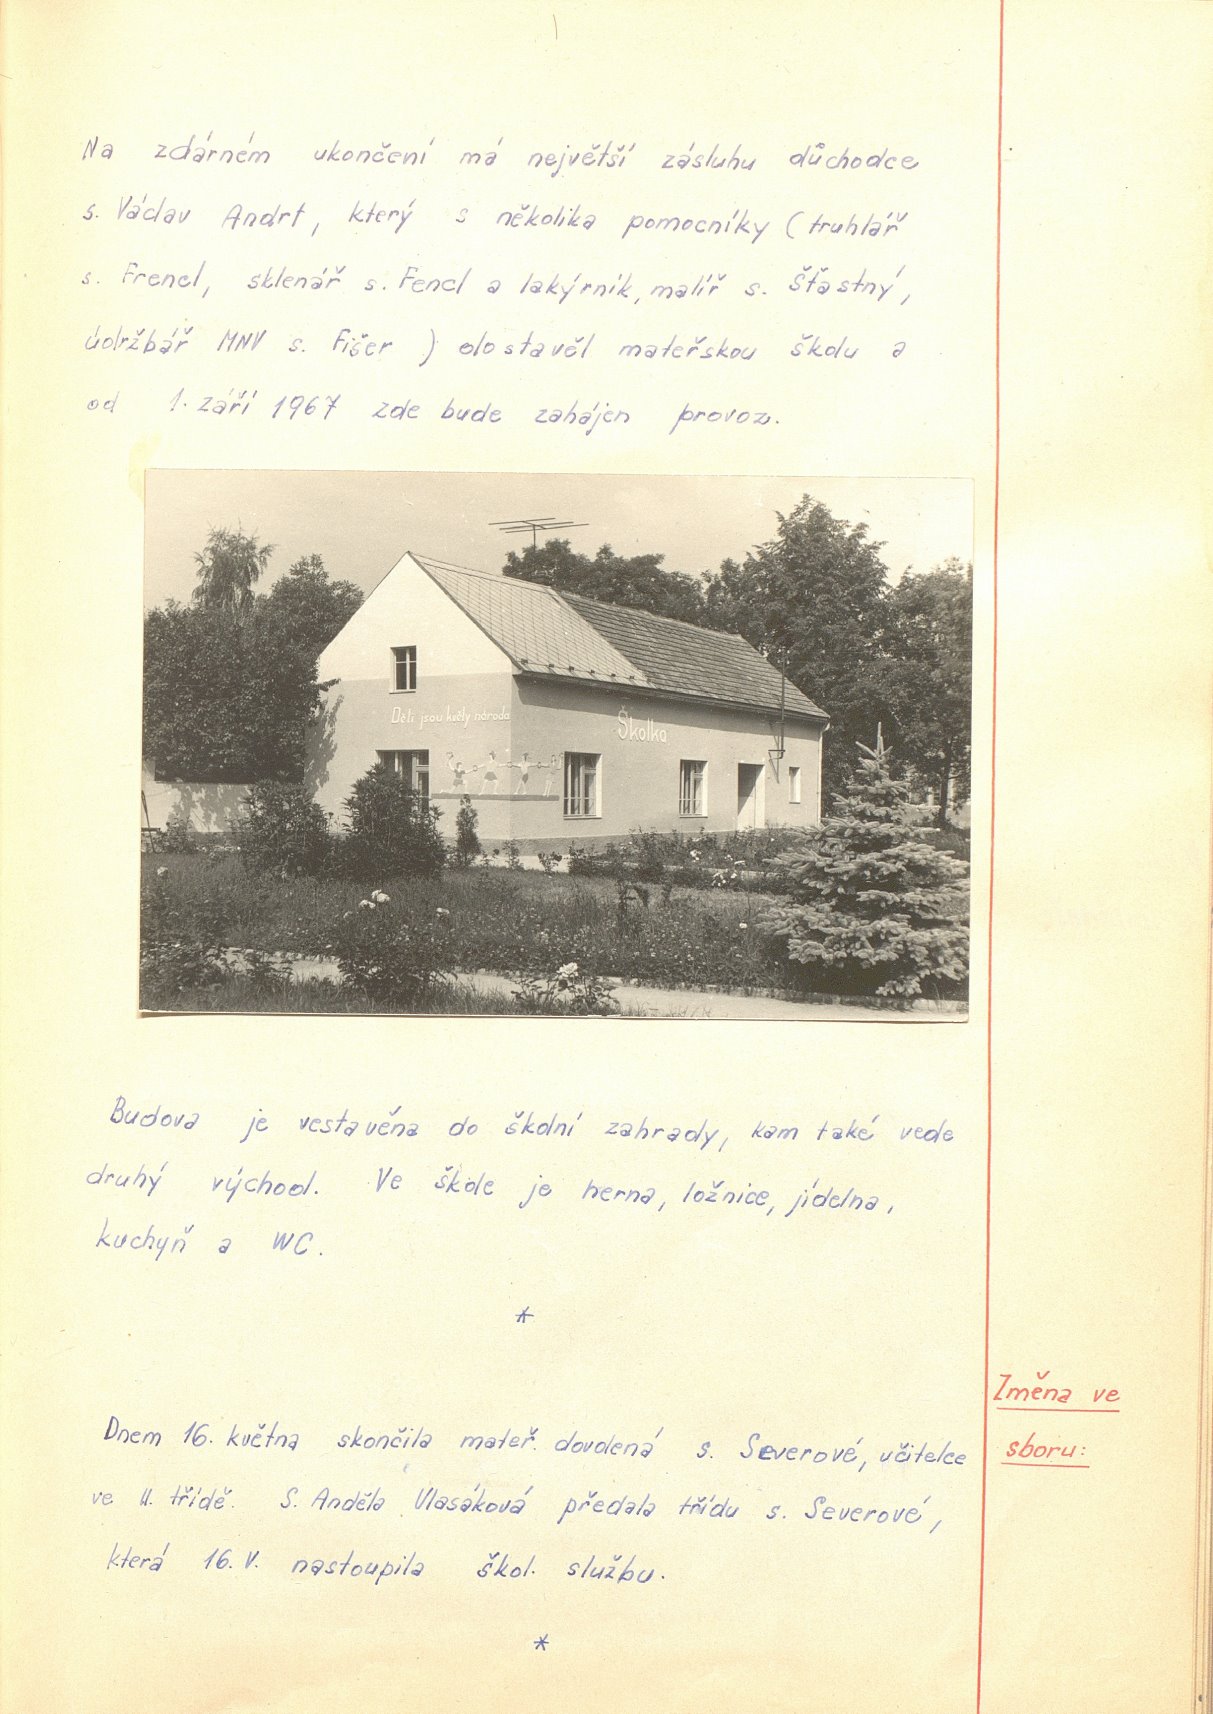 Na zdárném ukončení má největší zásluhu důchodce
s. Václav Andrt, který s několika pomocníky (truhlář
s. Frencl, sklenář s. Fencl a lakýrník, malíř s. Šťastný,
údržbář MNV s. Fišer) dostavěl mateřskou školu a
od 1. září 1967 zde bude zahájen provoz.
Děti jsou květy národa
Školka
Budova je vestavěna do školní zahrady, kam také vede
druhý východ. Ve škole je herna, ložnice, jídelna,
kuchyň a WC.
*
Změna ve
sboru:
Dnem 16. května skončila mateř. dovolená s. Severové, učitelce
ve II. třídě. S. Anděla Vlasáková předala třídu s. Severové,
která 16. V. nastoupila škol. službu.
*